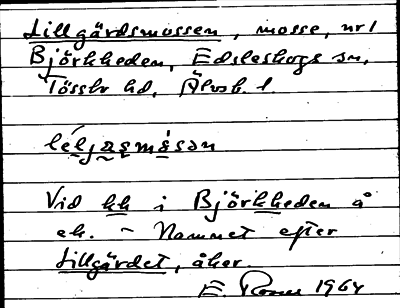 Lillgärdsmossen, mosse, nr 1
Björkheden, Edsleskogs sn,
Tössbo hd, Älvsb. l.
léljaṣmósan
Vid kh i Björkheden å
ek. – Namnet efter
Lillgärdet, åker.
E. 1964